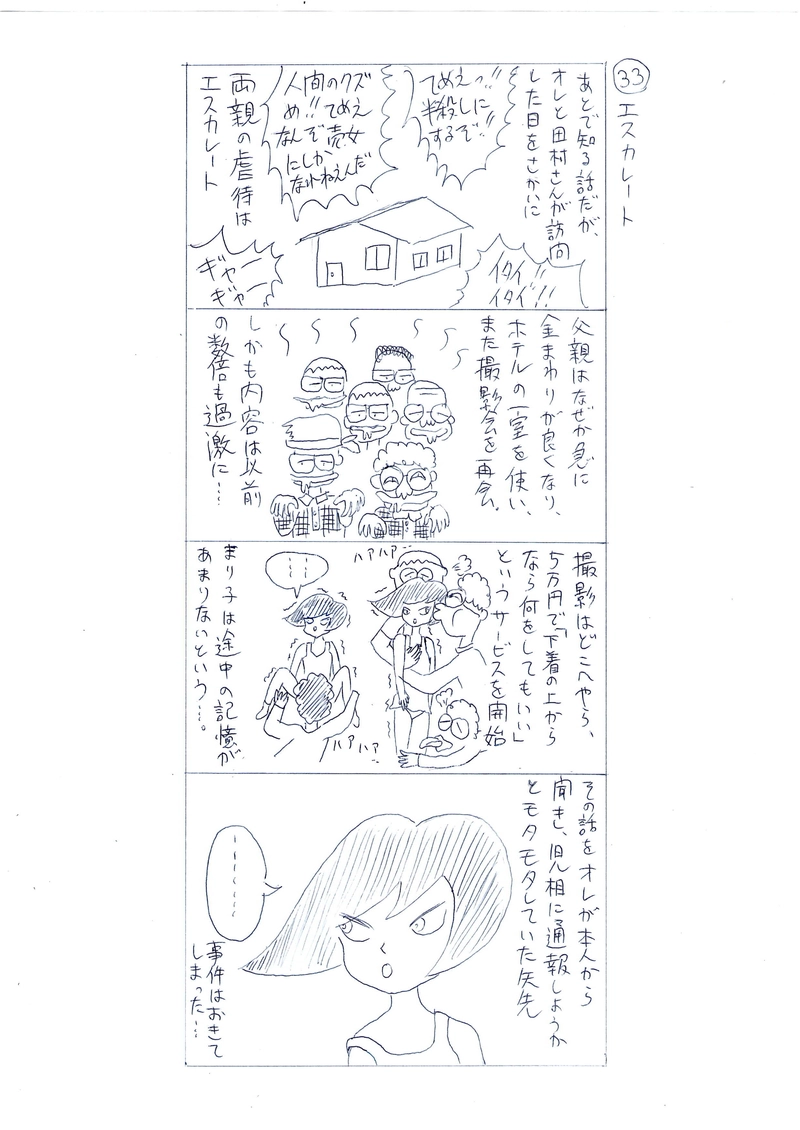 33
エスカレート
あとで知る話だが、
オレと田村さんが訪問
した日をさかいに
てめえっ!!
半殺しに
するぞ!!
人間のクズ
め!!てめえ
なんぞ売女
にしか
なれねえんだ
両親の虐待は
エスカレート
イタイ!!
イタイ!!
ギャー
ギャー
父親はなぜか急に
金まわりが良くなり、
ホテルの一室を使い、
また撮影会を再会。
しかも内容は以前
の数倍も過激に…
撮影はどこへやら、
5万円で「下着の上から
なら何をしてもいい」
というサービスを開始
ハアハア
ハアハア
まり子は途中の記憶が
あまりないという…。
その話をオレが本人から
聞きし、児相に通報しようか
とモタモタしていた矢先
事件はおきて
しまった…